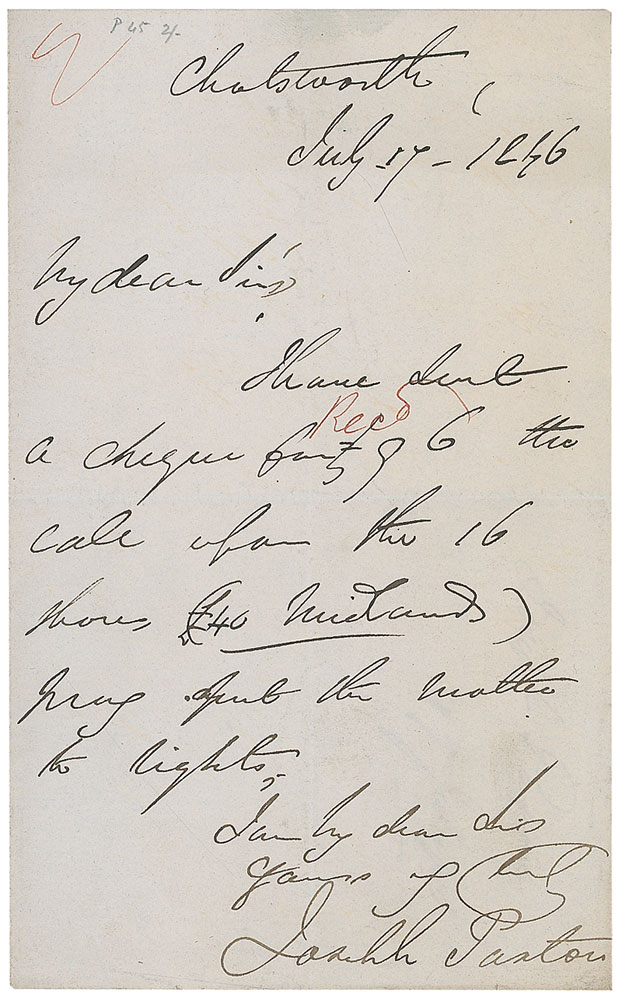 P 45 2/-
Chatsworth
July 17 - 1846
My dear Sir
I have sent
Recd
a cheque for £96 the
call upon the 16
shares (£40 Midlands)
pray put the matter
to rights,
I am My dear Sir
Yours truly
Joseph Paxton